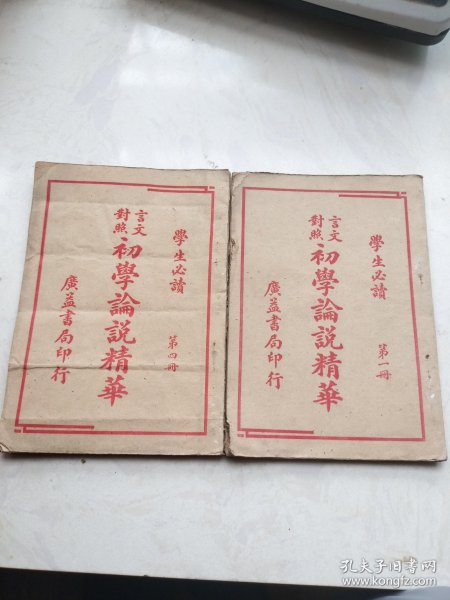 學生必讀
第四冊
言文對照
初學論説精華
廣益書局印行
學生必讀
第一冊
言文對照
初學論説精華
廣益書局印行
孔夫子旧书网
www.kongfz.com